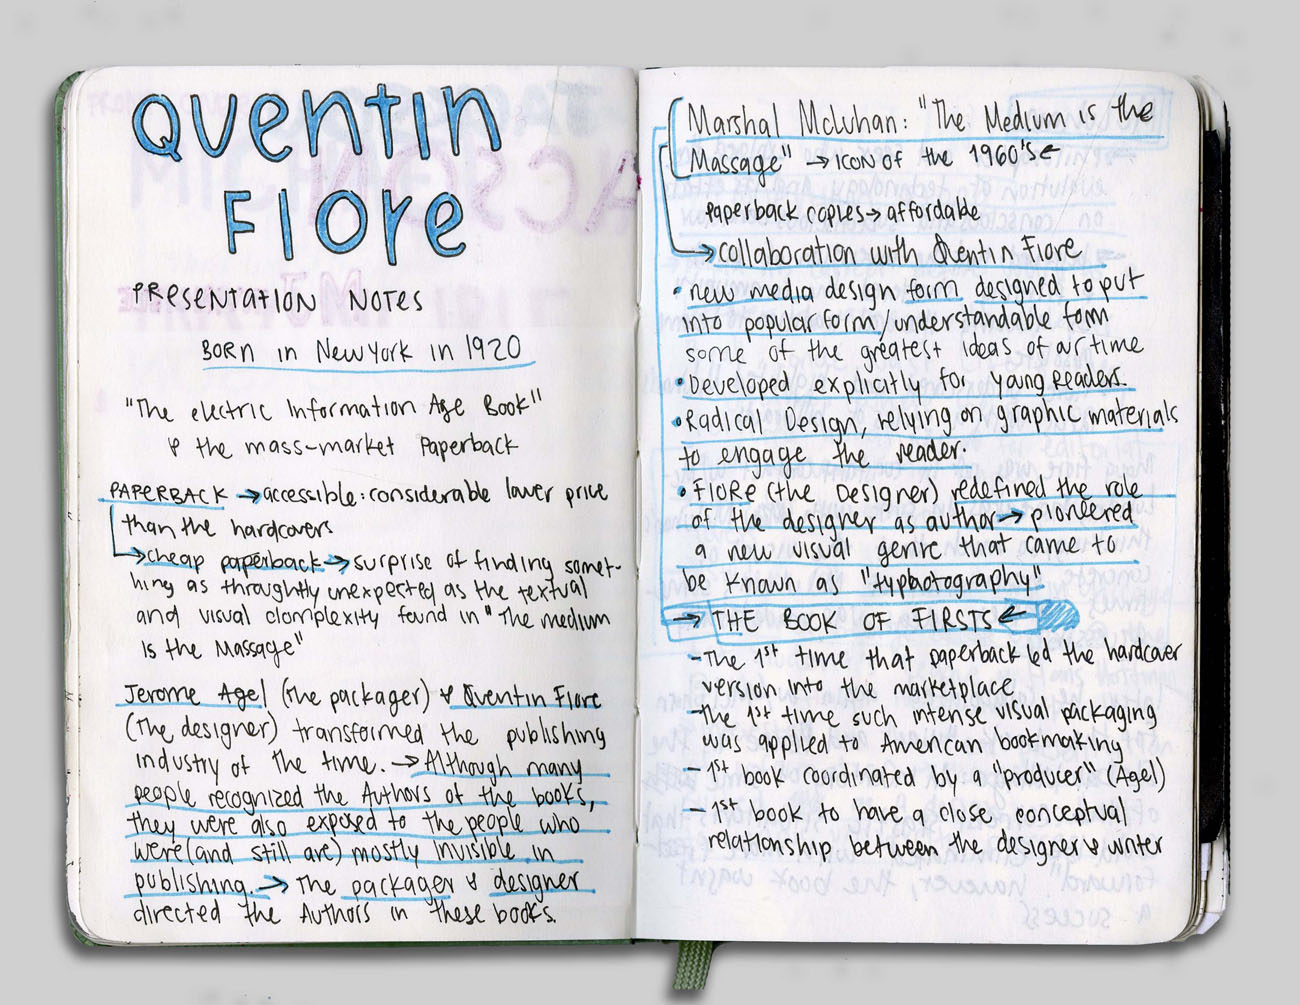 Quentin
Fiore
PRESENTATION NOTES
BORN in New York in 1920
"The electric Information Age Book"
& the mass-market Paperback
PAPERBACK → accessible: considerable lower price
than the hardcovers
→ cheap paperback → surprise of finding somet-
hing as throughtly unexpected as the textual
and visual clomplexity found in "The medium
is the Massage"
Jerome Agel (The packager) & Quentin Fiore
(The designer) transformed the publishing
industry of the time. → Although many
people recognized the Authors of the books,
they were also exposed to the people who
were (and still are) mostly invisible in
publishing. → The packager & designer
directed the Authors in these books.
Marshal McLuhan: "The Medium is the
Massage" → ICON of the 1960's ←
paperback copies → affordable
→ collaboration with Quentin Fiore
• new media design form designed to put
into popular form/understandable form
some of the greatest ideas of our time
• Developed explicitly for young Readers.
• Radical Design, relying on graphic materials
to engage the reader.
• FIORE (the Designer) redefined the role
of the designer as author → pioneered
a new visual genre that came to
be known as "typhotography"
→ THE BOOK OF FIRSTS ←
- The 1st time that paperback led the hardcover
version into the marketplace
- The 1st time such intense visual packaging
was applied to American bookmaking
- 1st book coordinated by a "producer" (Agel)
- 1st book to have a close conceptual
relationship between the designer & writer